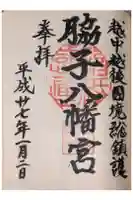 越中越後国境鎮護
脇子八幡宮
奉拝
平成廿七年一月二日